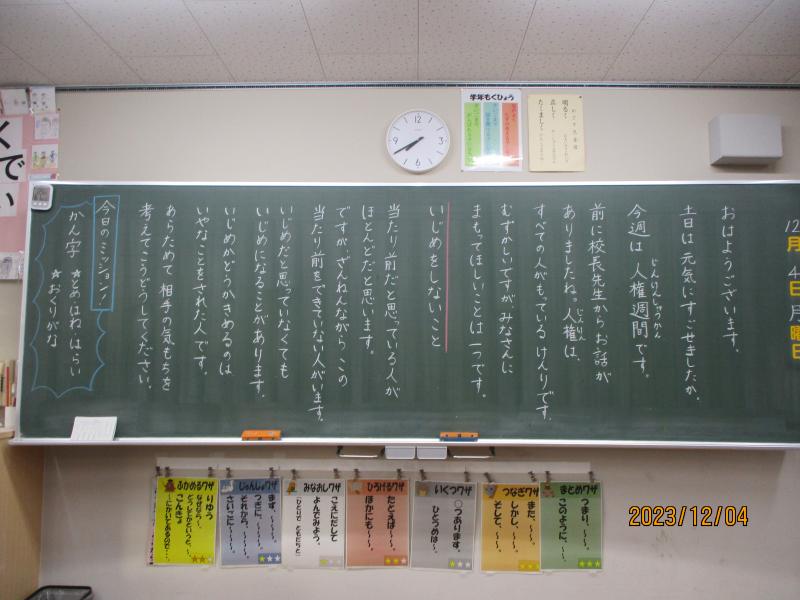 12月4日月曜日
おはようございます。
土日は元気にすごせましたか。
今週は 人権週間です。
じんけんしゅうかん
前に校長先生からお話が
ありましたね。人権は、
じんけん
すべての人がもっている けんりです。
むずかしいですが みなさんに
まもってほしいことは 一つです。
いじめをしないこと
当たり前だと思っている人が
ほとんどだと思います。
ですが、ざんねんながら この
当たり前をできていない人がいます。
いじめだと思っていなくても
いじめになることがあります。
いじめかどうかきめるのは
いやなことをされた人です。
あらためて 相手の気もちを
考えてこうどうしてください。
今日のミッション!
かん字 ★とめはねはらい
★おくりがな
学年もくひょう
明るく
正しく
たくましく
くで
い
まとめワザ
つまり、〜〜。
このように、〜〜。
つなぎワザ
まだ、〜〜。
しかし、〜〜。
そして、〜〜。
いくつワザ
○つあります。
ひとつめは〜。
ひろげるワザ
たとえば〜〜。
ほかにも〜〜。
みなおしワザ
こえにだして
よんでみよう。
(ひとりで ともだちと)
じゅんじょワザ
まず、〜〜。
つぎに、〜〜。
それから、〜〜。
さいごに〜〜。
ふかめるワザ
りゆう
なぜなら〜
どうしてかというと、〜
こんきょ
〜にかいてあるので…
2023/12/04